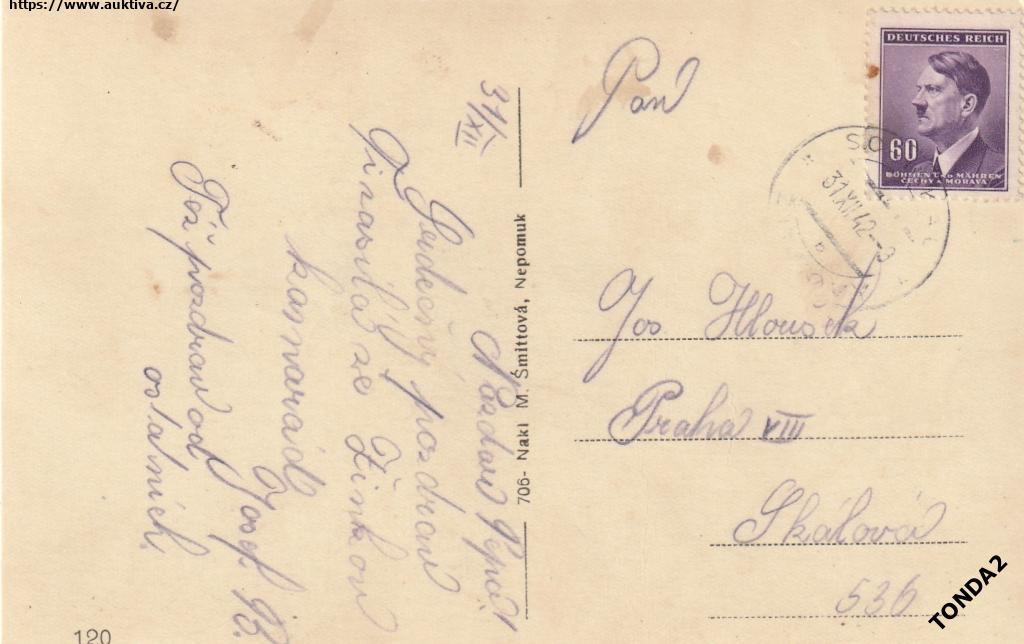 https://www.auktiva.cz/
31/XII
Nazdar Pepo!
Srdečný pozdrav
Ti zasílá ze Žinkov
kamarád
Josef B.
Též pozdrav od
ostatních.
706- Nakl M. Šmittová, Nepomuk
120
DEUTSCHES REICH
60
BÖHMEN UND MÄHREN
ČECHY A MORAVA
31.XII.42
Pan
Jos Hlousek
Praha VIII
Skálová
536
TONDA2